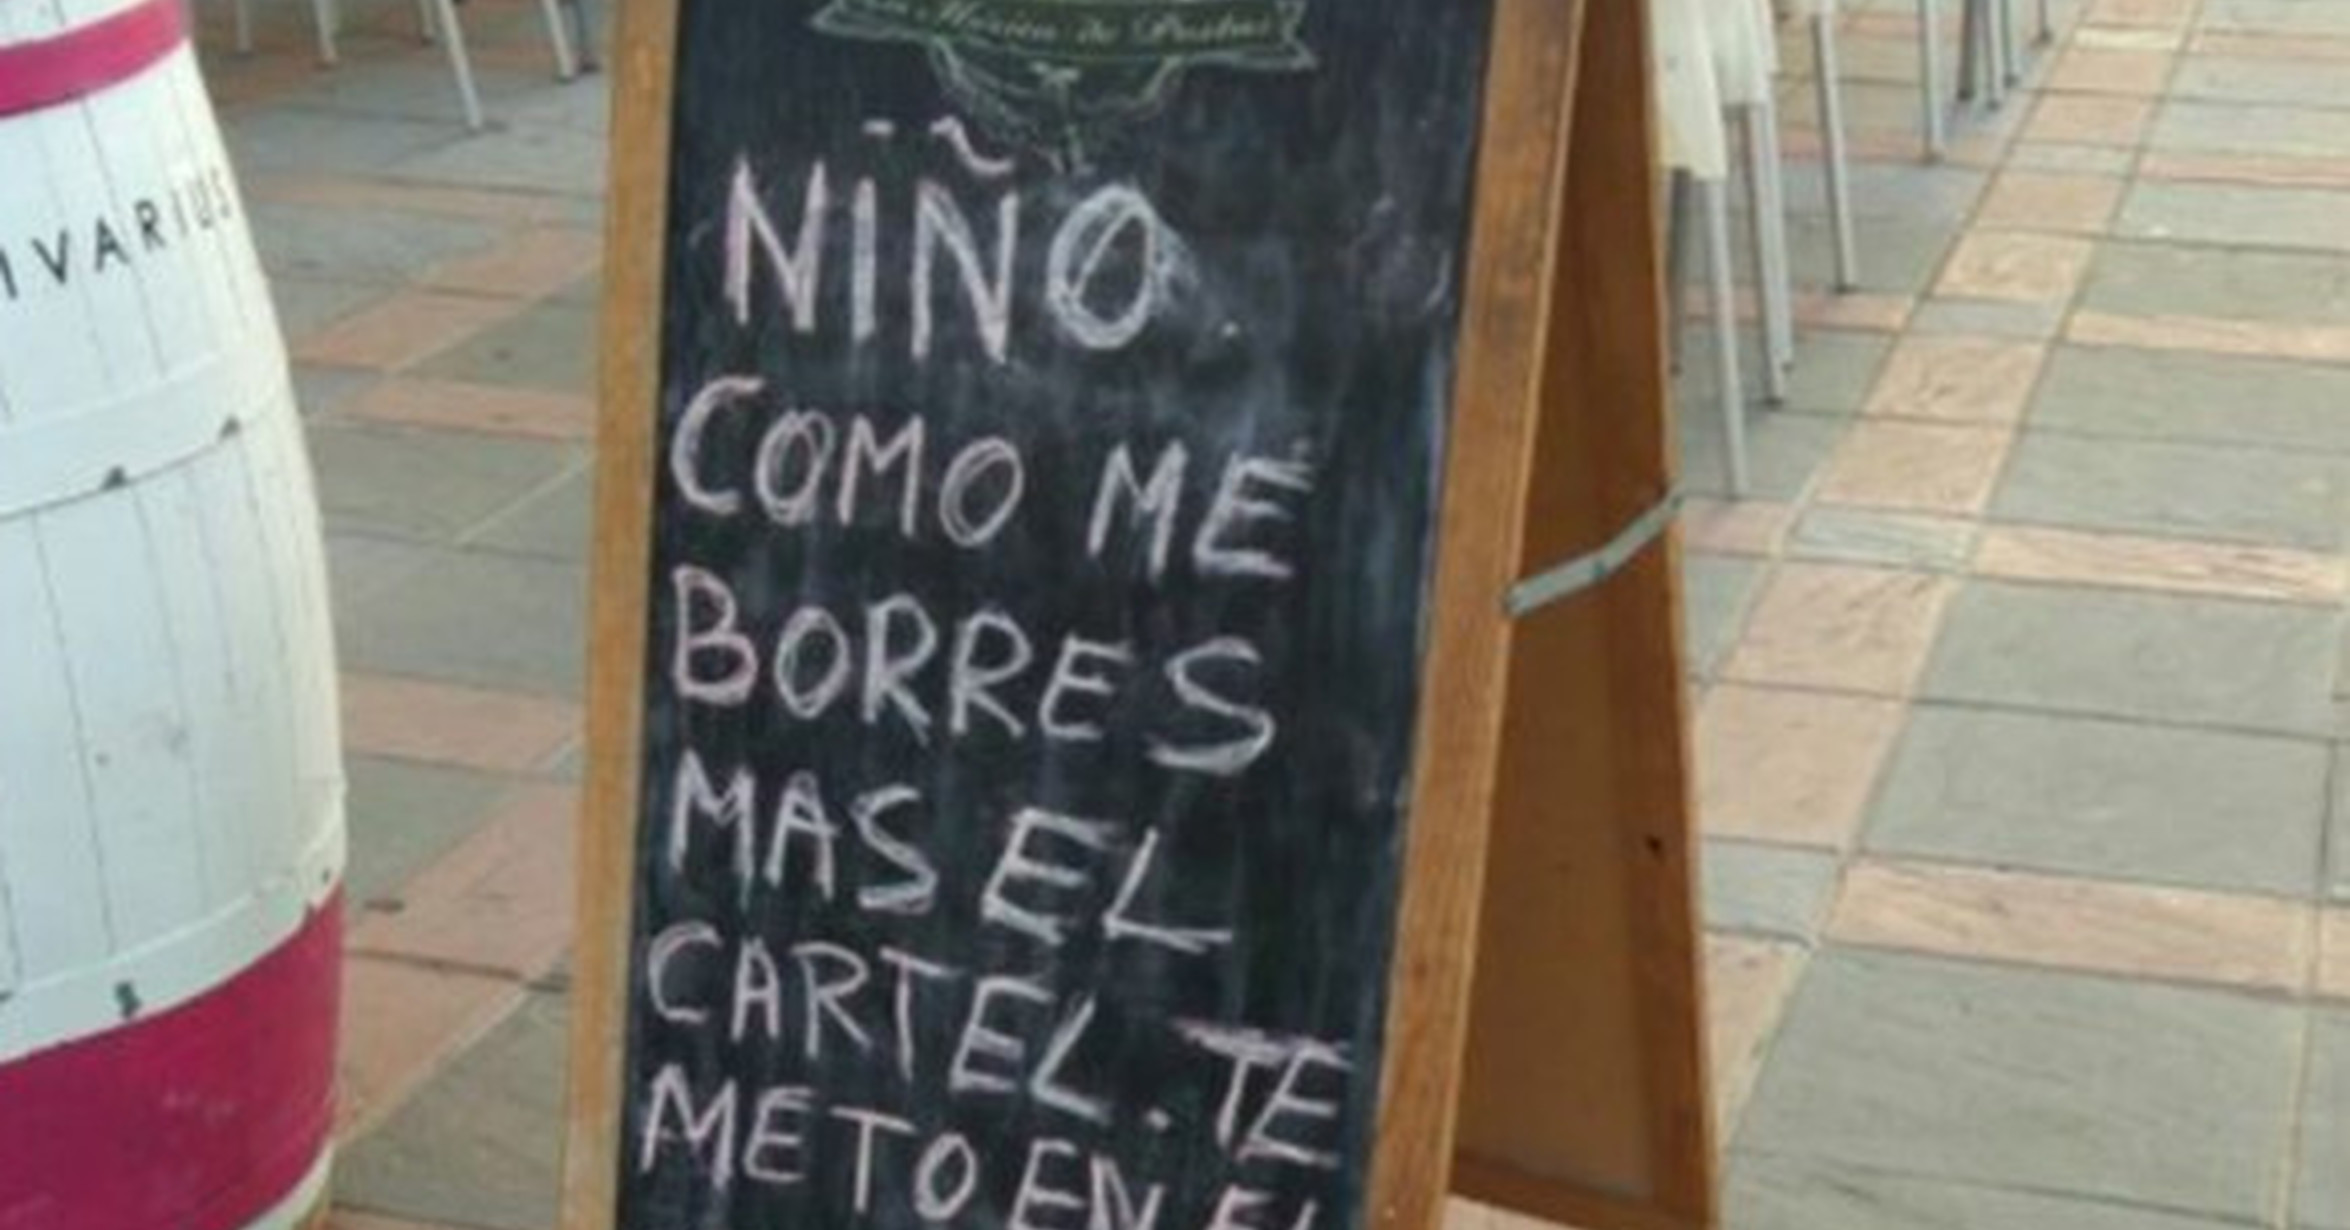 IVARIUS
NIÑO
COMO ME
BORRES
MAS EL
CARTEL. TE
METO EN EL